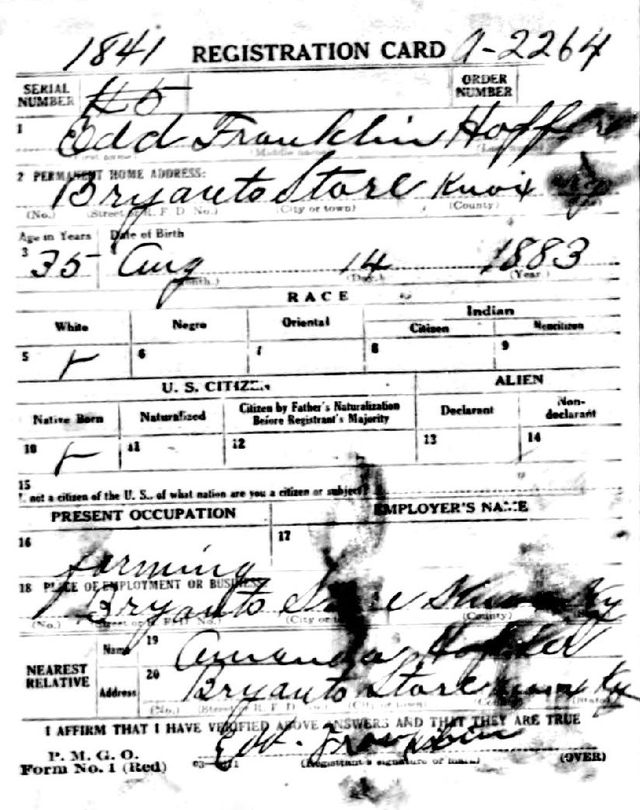 1841 REGISTRATION CARD A-2264
SERIAL NUMBER #5 ORDER NUMBER
1 Edd Franklin
(First name) (Middle name)
2 PERMANENT HOME ADDRESS:
Bryants Store Knox
(No.) (Street or R. F. D. No.) (City or town) (County)
Age in Years Date of Birth
3 35 4 Aug 14 1883
(Month.) (Day.) (Year.)
RACE
White Negro Oriental Indian
Citizen Noncitizen
5 6 7 8 9
U. S. CITIZEN ALIEN
Native Born Naturalized Citizen by Father's Naturalization Before Registrant's Majority Declarant Non-declarant
10 11 12 13 14
15
not a citizen of the U. S., of what nation are you a citizen or subject?
PRESENT OCCUPATION EMPLOYER'S NAME
16 17
farming
18 PLACE OF EMPLOYMENT OR BUSINESS
Bryants Store Knox Ky
(No.) (Street or R. F. D. No.) (City or town) (County)
NEAREST RELATIVE Name 19 Amanda
Address 20 Bryants Store Knox Ky
(No.) (Street or R. F. D. No.) (City or town)
I AFFIRM THAT I HAVE VERIFIED ABOVE ANSWERS AND THAT THEY ARE TRUE
P. M. G. O.
Form No. 1 (Red) (Registrant's signature or mark) (OVER)
Edd Franklin